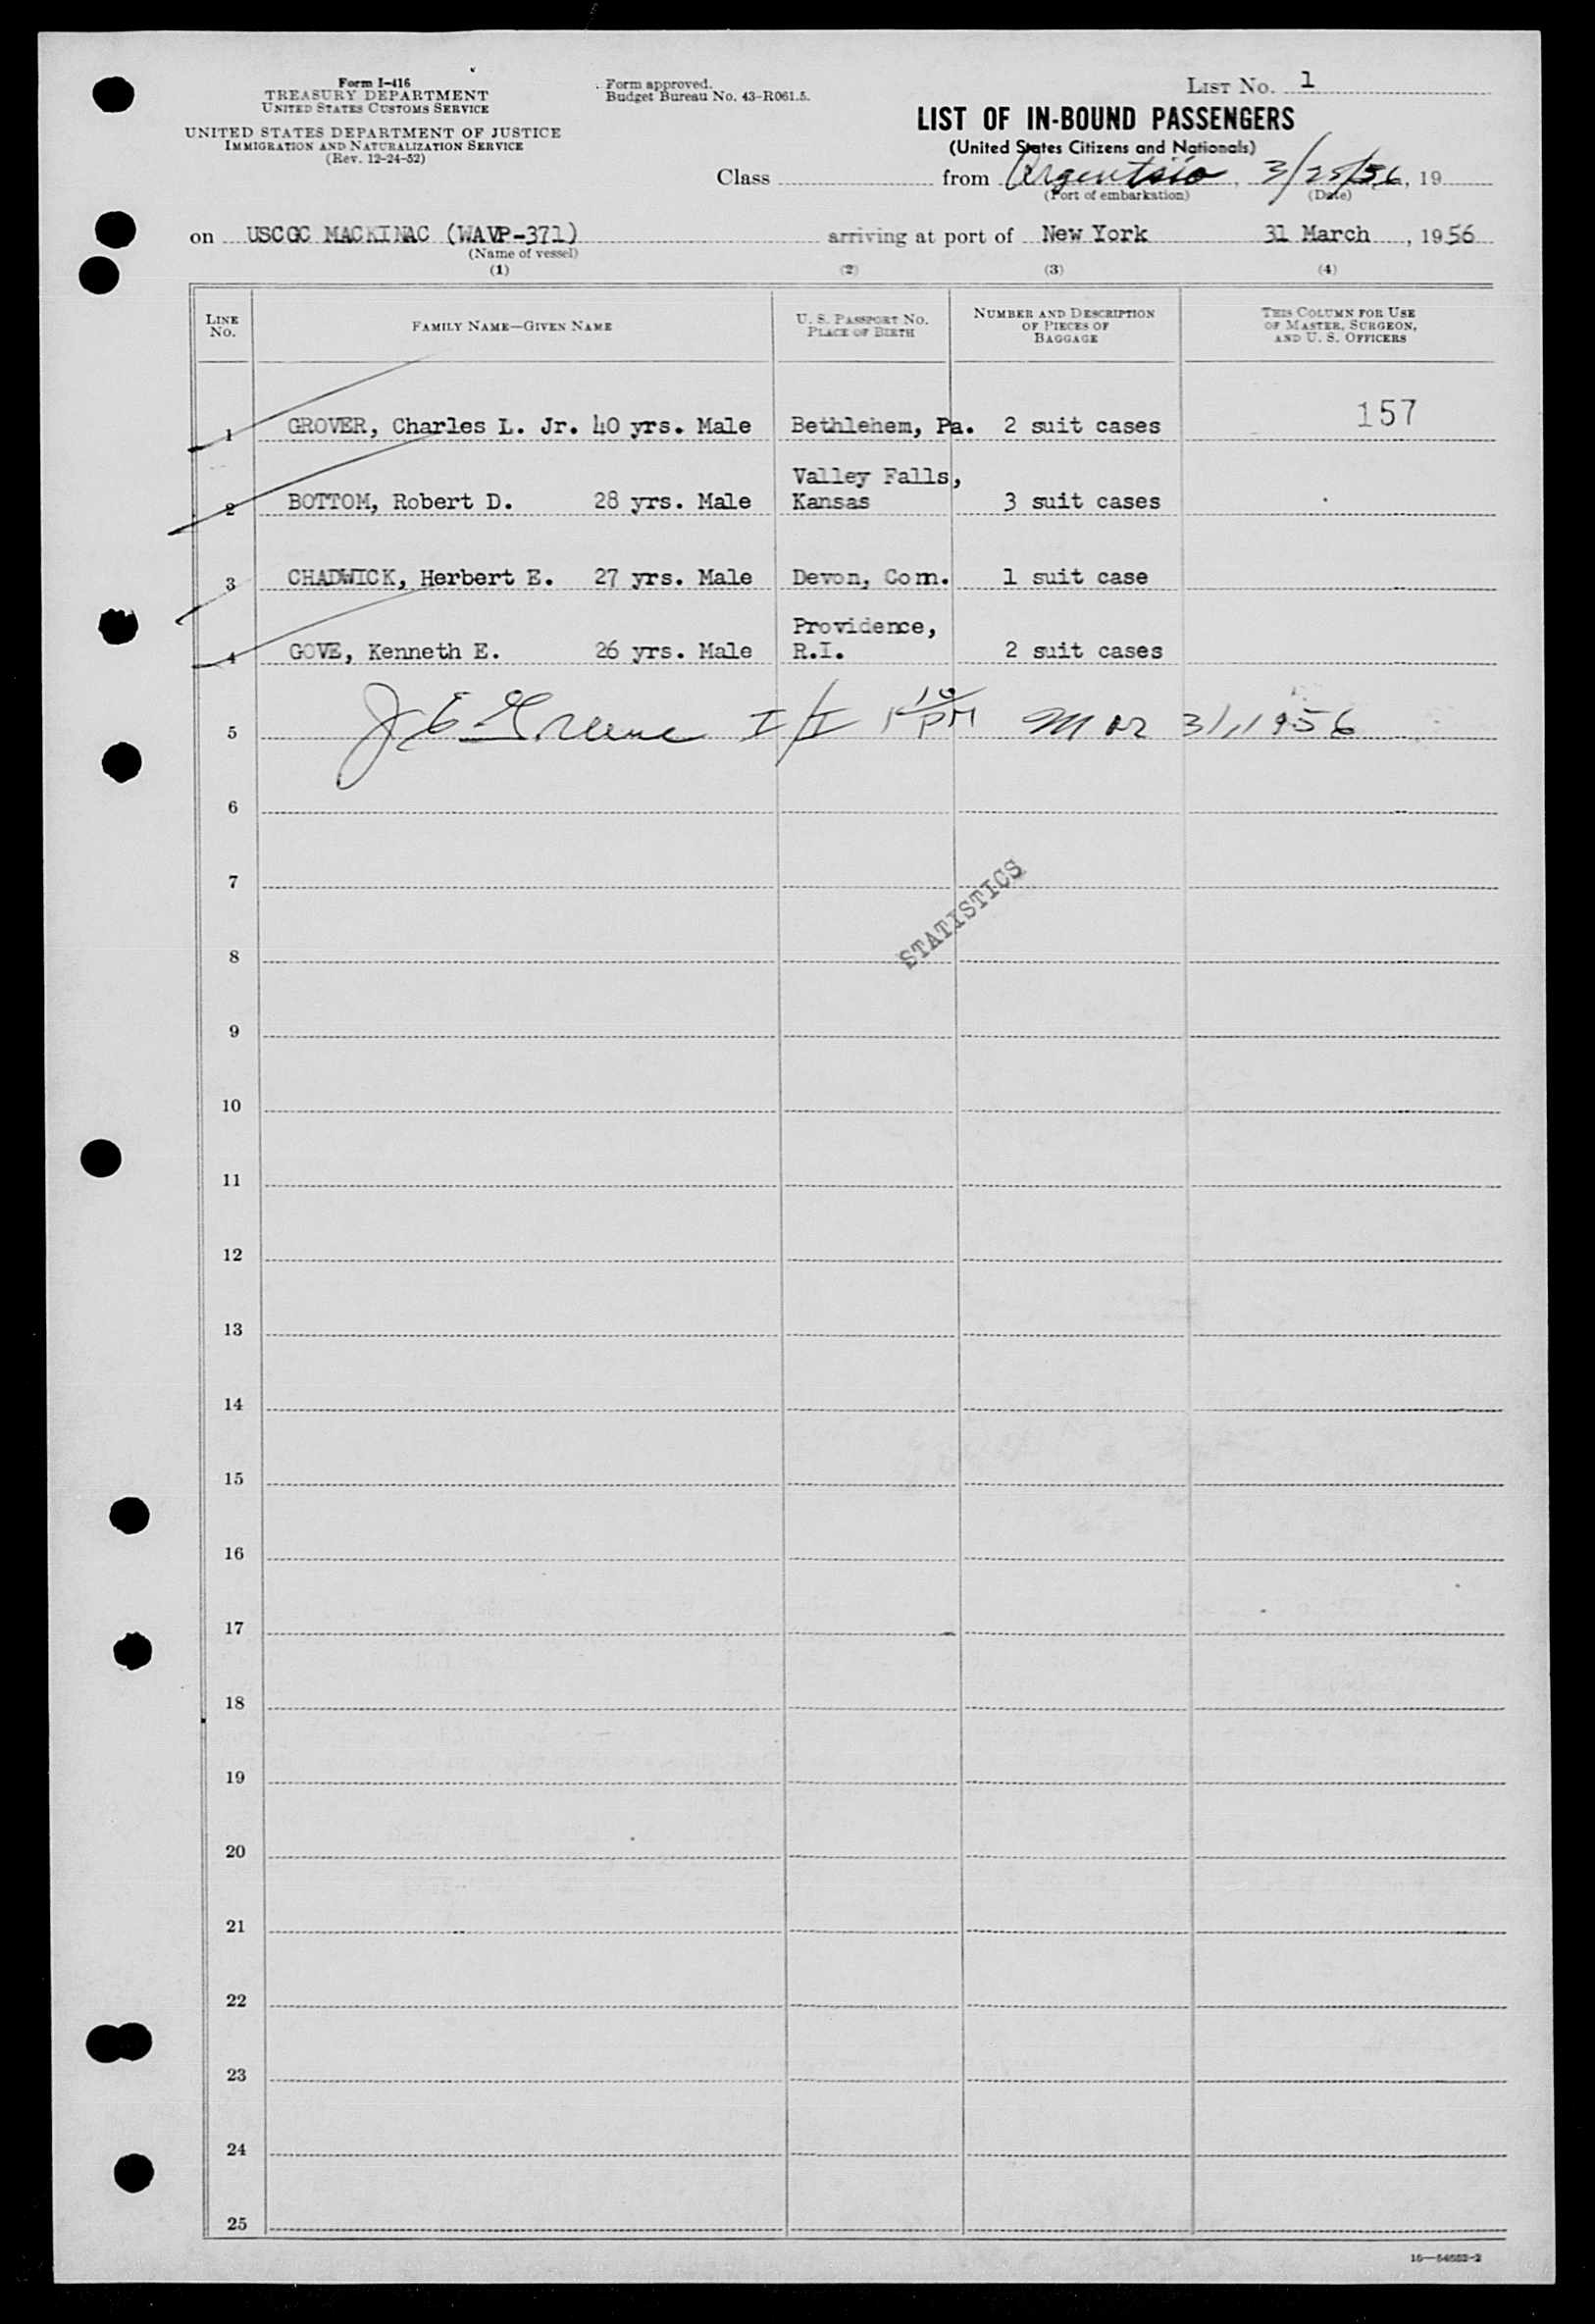 Form I-416
TREASURY DEPARTMENT
UNITED STATES CUSTOMS SERVICE
UNITED STATES DEPARTMENT OF JUSTICE
IMMIGRATION AND NATURALIZATION SERVICE
(Rev. 12-24-52)
Form approved.
Budget Bureau No. 43-R061.5.
LIST NO. 1
LIST OF IN-BOUND PASSENGERS
(United States Citizens and Nationals)
Class from Argentsia, 3/25/56, 19
(Port of embarkation) (Date)
on USCGC MACKINAC (WAVP-371) arriving at port of New York 31 March, 1956
(Name of vessel)
(1) (2) (3) (4)
LINE NO. FAMILY NAME—GIVEN NAME U. S. PASSPORT NO. PLACE OF BIRTH NUMBER AND DESCRIPTION OF PIECES OF BAGGAGE THIS COLUMN FOR USE OF MASTER, SURGEON, AND U. S. OFFICERS
1 GROVER, Charles L. Jr. 40 yrs. Male Bethlehem, Pa. 2 suit cases 157
2 BOTTOM, Robert D. 28 yrs. Male Valley Falls, Kansas 3 suit cases
3 CHADWICK, Herbert E. 27 yrs. Male Devon, Conn. 1 suit case
4 GOVE, Kenneth E. 26 yrs. Male Providence, R.I. 2 suit cases
5 J E Greene I/I PM Mar 31, 1956
6
7
STATISTICS
8
9
10
11
12
13
14
15
16
17
18
19
20
21
22
23
24
25